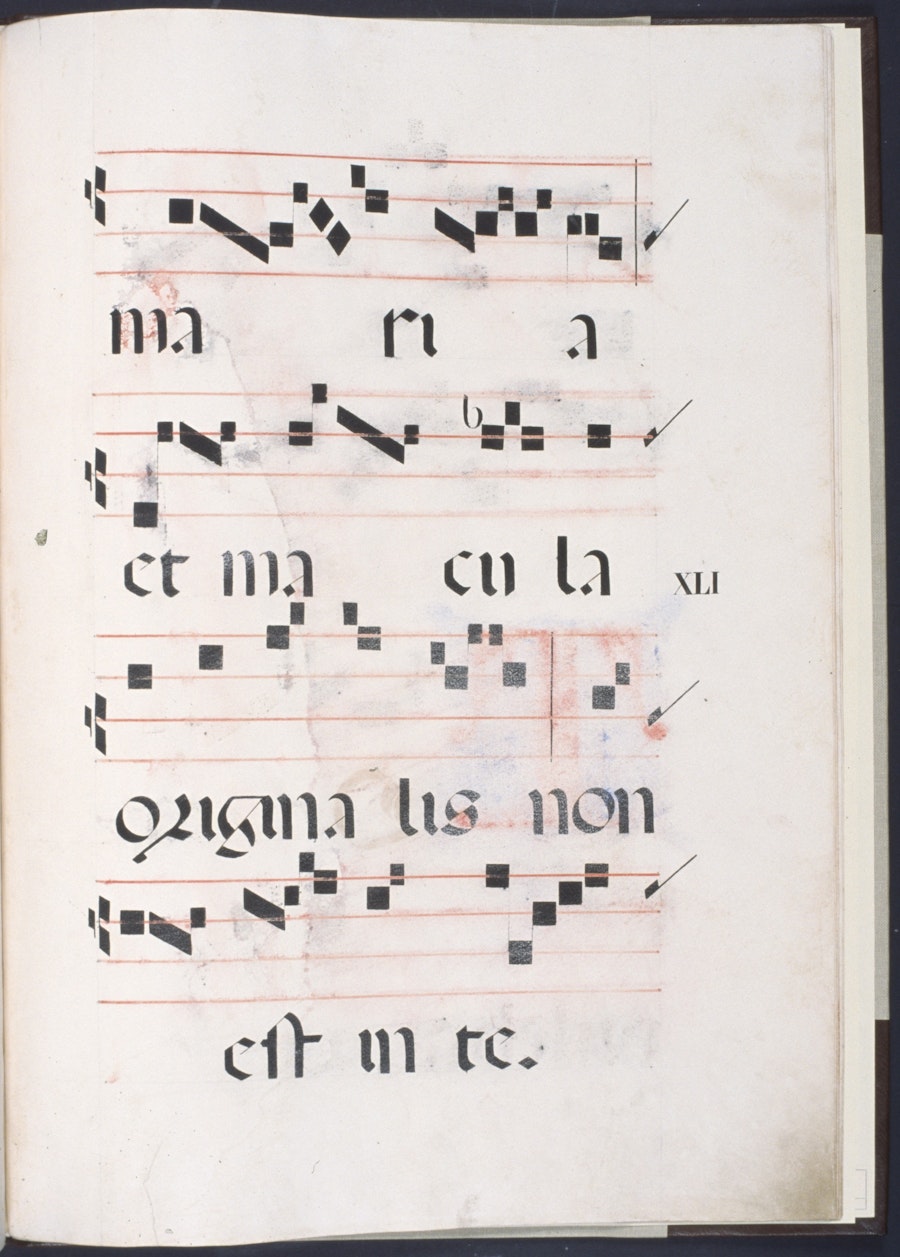 ma ri a
et ma cu la
XLI
origina lis non
est in te.